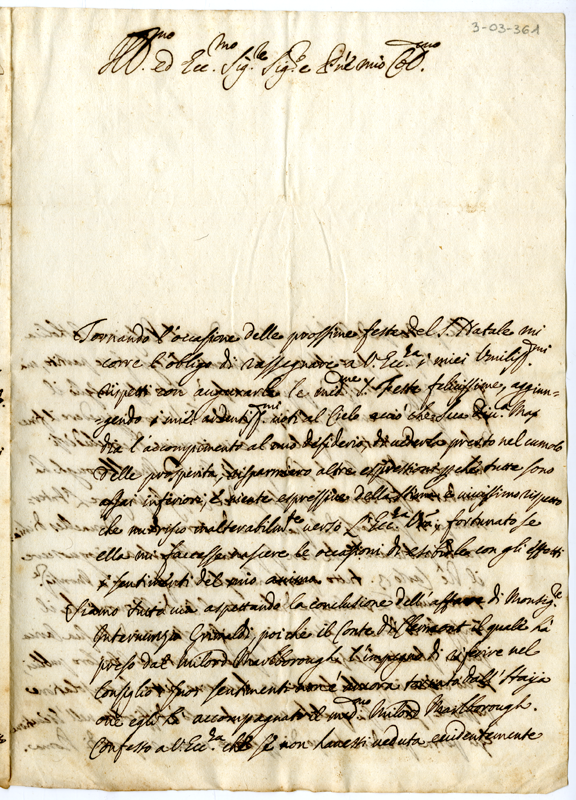 3-03-361
Ill.mo ed Ecc.mo Sig.re Sig.re e P.rõne mio Col.mo
Tornando l'occasione delle prossime feste del S. Natale mi
corre l'obligo di rassegnare a V. Ecc.za i miei Umiliss.mi
rispetti con augurarle le med.me S. Feste felicissime, aggiun=
gendo i miei ardentiss.mi voti al Cielo acciò che Sua Div.a Maj
dia l'accompimento al mio desiderio, di vederla presto nel cumolo
delle prosperità, risparmiero altre espressioni che tutte sono
assai inferiori, e niente espressive della stima e vivissimo rispetto
che mi reso inalterabilm.te verso V.ra Ecc.za fortunato se
ella mi facesse nascere le occasioni di esibirle con gli effetti
i sentimenti del mio animo.
Siamo tutta via aspettando la conclusione dell'affare di Monsig.re
Internunzio Grimaldi poiche il Conte di Clermont il quale hà
preso dal Milord Marlborough l'impegno di riferire nel
Consiglio i suoi sentimenti non è ancora tornato dall' Haija
ove egli hà accompagnato il med.mo Milord Marlborough.
Confesso a V. Ecc.za che se non havessi veduta evidentemente